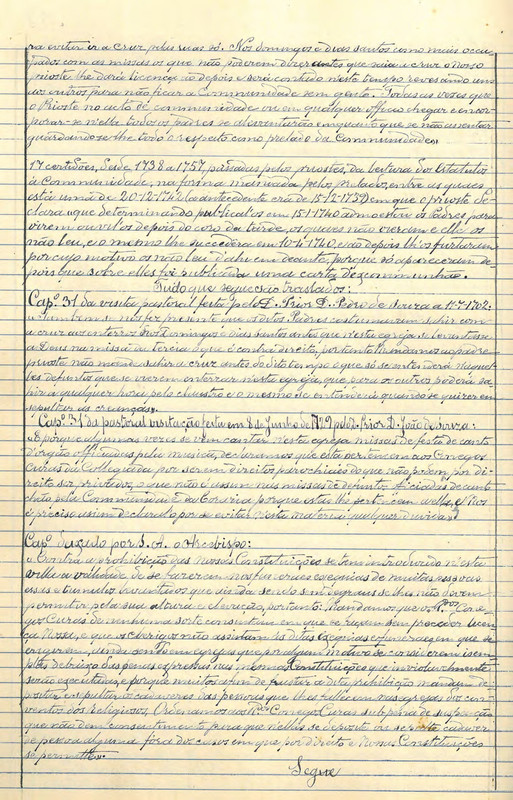 ra evitar ir a cruz pelas ruas só. Nos domingos e dias santos como mais occu-
pados com as missas os que não poderem dizer antes que saia a cruz o Nosso
prioste lhe dará licença do depois e será contado neste tempo revesando uns
aos outros para não ficar a communidade sem gente. Todas as vezes que
o Prioste no acto de communidade ou em qualquer officio chegar e encor-
porar-se n'ella todos os padres se alevantarão emquanto que se não assentar
guardando-se-lhe todo o respeito como prelado da communidade»
17 certidões, desde 1738 a 1757, passadas pelos priostes, da leitura dos Estatutos
á Communidade, na forma mandada pelos Prelados, entre as quaes
está uma de 20-12-1740 (a antecedente era de 15-12-1739) em que o prioste de-
clara «que determinando publical'os em 15-1-1740 admoestou os Padres para
virem ouvil'os depois do coro da tarde, os quaes não vieram e elle os
não leu, e o mesmo lhe succedera em 10-4-1740, e ao depois lh'os furtaram
por cujo motivo os não leu d'ahi em deante, porque só appareceram de-
pois que sobre elles foi publicada uma carta d'excommunhão.
Tudo que segue são traslados:
Capº. 31 da visita pastoral feita pelo D. Prior D. Pedro de Souza a 11-7-1702:
«Tambem se nos fez presente que os ditos Padres costumavam sahir com
a cruz a enterros dos Domingos e dias santos antes que nesta egreja se levantasse
a Deus na missa da tercia o que é contra direito, portanto lhe mandamos ao padre
prioste não mande sahir a cruz antes do dito tempo o que só se entenderá naquel-
les defuntos que se vierem enterrar n'esta egreja, que para os outros poderá sa-
hir a qualquer hora pelo claustro e o mesmo se entenderá quando se quizerem
sepultar as creanças»
Capº. 31 da pastoral visitação feita em 8 de Junho de 1729 pelo D. Prior D. João de Souza:
«E porque algumas vezes se vem cantar nesta egreja missas de festa de canto
d'orgão officiadas pela musica, declaramos que esta pertencem aos Conegos
Curas da Collegiada por serem direitos parochiaes do que não podem por di-
reito ser privados, o que não é assim nas missas de defuntos officiadas de canto
chão pela Communidade da Coraria porque estas lhe pertencem
é preciso assim declaral-o por se evitar nesta materia qualquer duvida»
Capº. dado por S. A. o Arcebispo:
«Contra a prohibição das Nossas Constituições se tem introduzido n'esta
villa a vaidade de se fazerem nos funeraes e exequias de muitas pessoas
essas e tumulos levantados que ainda sendo sem degraus se lhes não devem
permittir pela sua altura e elevação, portanto: Mandamos que os R.dos Cone-
gos Curas de nenhuma sorte consintam em que se façam sem preceder licen-
ça Nossa, e que os clerigos não assistam ás ditas exequias e funeraes em que se
erigirem, ainda sendo em egrejas que por algum motivo se considerem isem-
ptas debaixo das penas expressas nas mesmas Constituições que inviolavelmente
serão executadas e porque muitos afim de frustrar a dita prohibição mandam de-
positar e sepultar os cadaveres das pessoas que lhes fallecem nas egrejas dos con-
ventos dos Religiosos, Ordenamos aos R.dos Conegos Curas sub pena de suspensão
que não dêem consentimento para que n'ellas se deposite ou sepulte cadaver
de pessoa alguma fóra dos casos em que por direito e Nossas Constituições
se permitte».
Segue